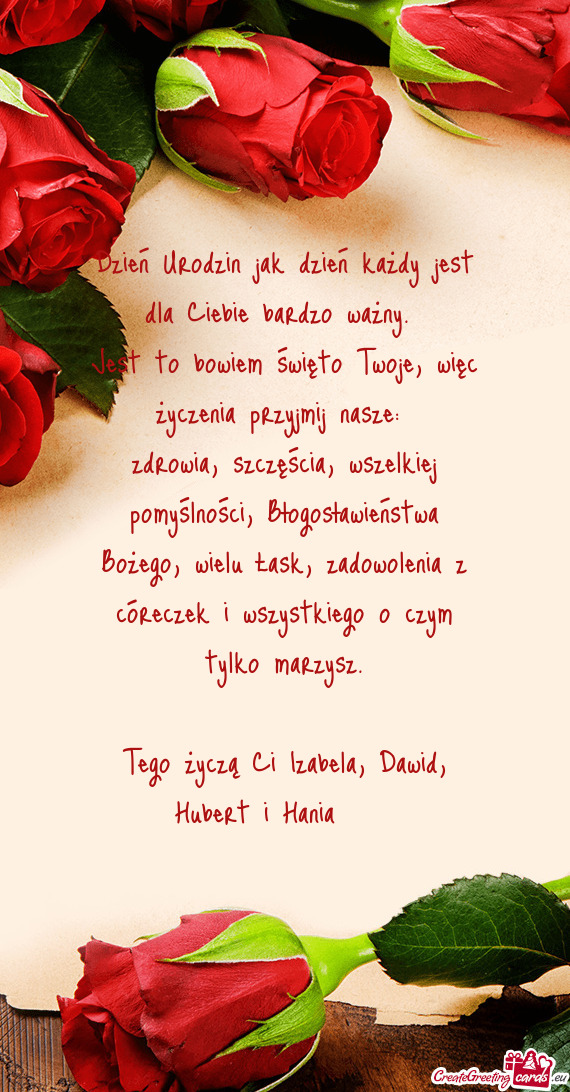 Dzień Urodzin jak dzień każdy jest
dla Ciebie bardzo ważny.
Jest to bowiem święto Twoje, więc
życzenia przyjmij nasze:
zdrowia, szczęścia, wszelkiej
pomyślności, Błogosławieństwa
Bożego, wielu Łask, zadowolenia z
córeczek i wszystkiego o czym
tylko marzysz.
Tego życzą Ci Izabela, Dawid,
Hubert i Hania
CreateGreetingcards.eu